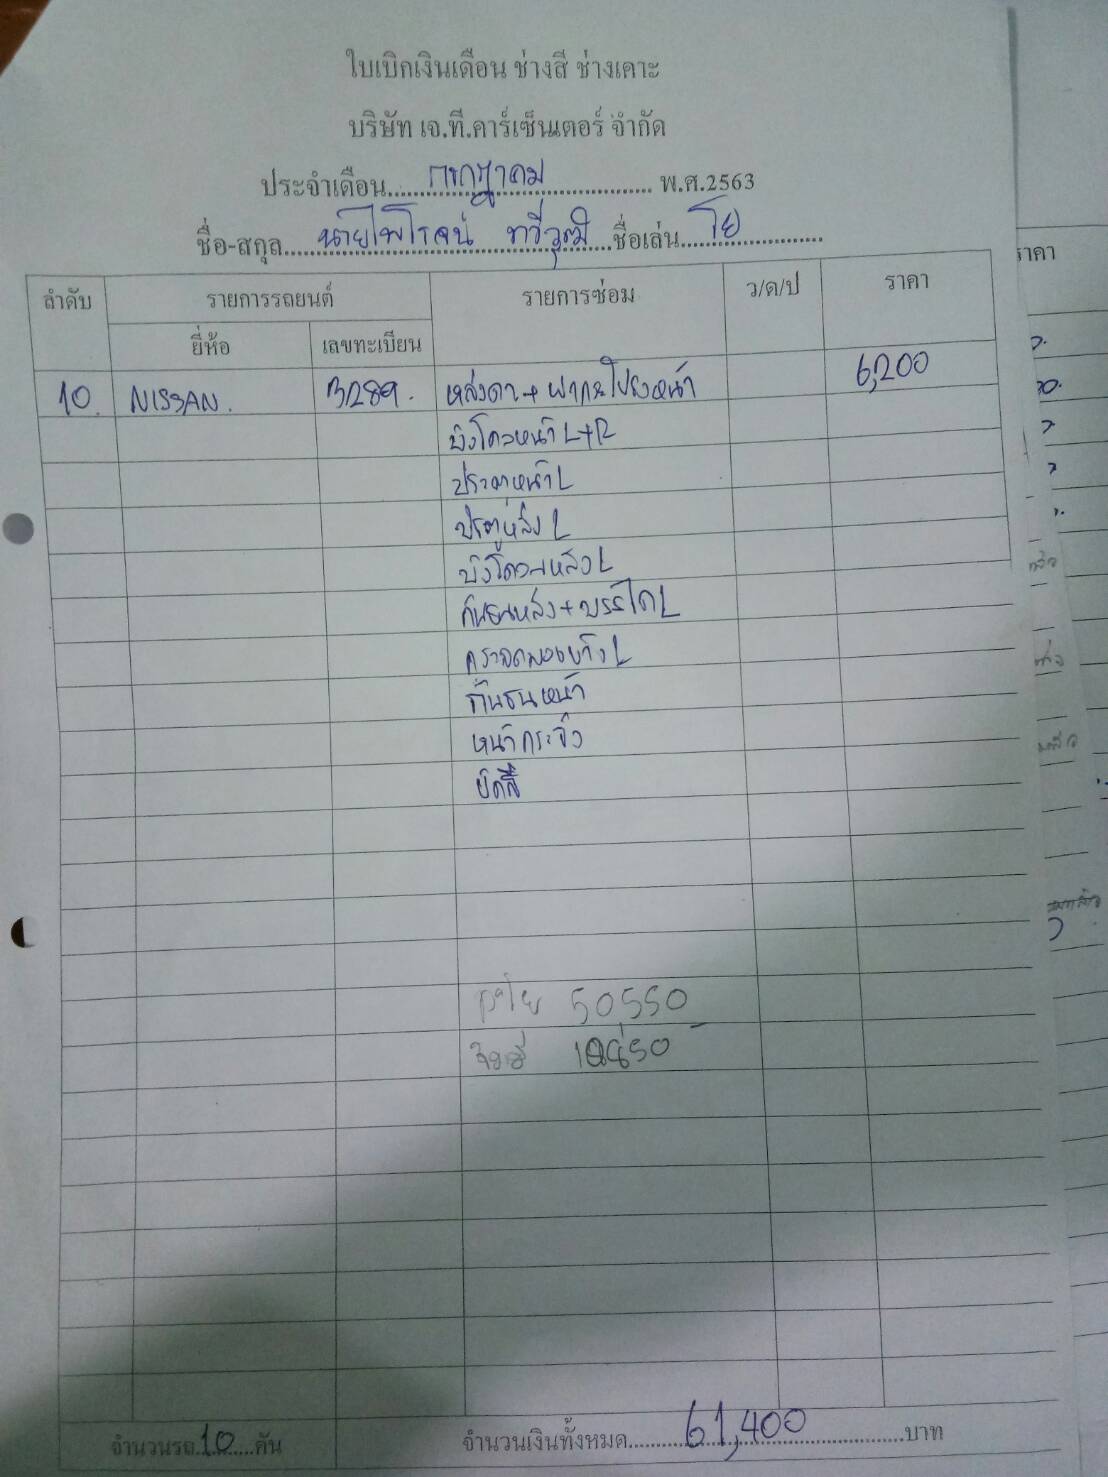 ใบเบิกเงินเดือน ช่างสี ช่างเคาะ
บริษัท เจ.ที.คาร์เซ็นเตอร์ จำกัด
ประจำเดือน กรกฎาคม พ.ศ.2563
ชื่อ-สกุล นายไพโรจน์ ทวีวุฒิ ชื่อเล่น โย
ลำดับ รายการรถยนต์ รายการซ่อม ว/ด/ป ราคา
ยี่ห้อ เลขทะเบียน
10. NISSAN. 3289. หลังคา + ฝากระโปรงหน้า 6,200
บังโคลนหน้า L+R
ประตูหน้า L
ประตูหลัง L
บังโคลนหลัง L
กันชนหลัง + บรรได L
L
กันชนหน้า
หน้ากระจัง
ขัดสี
50550
จำนวนรถ 10 คัน จำนวนเงินทั้งหมด 61,400 บาท
ราคา